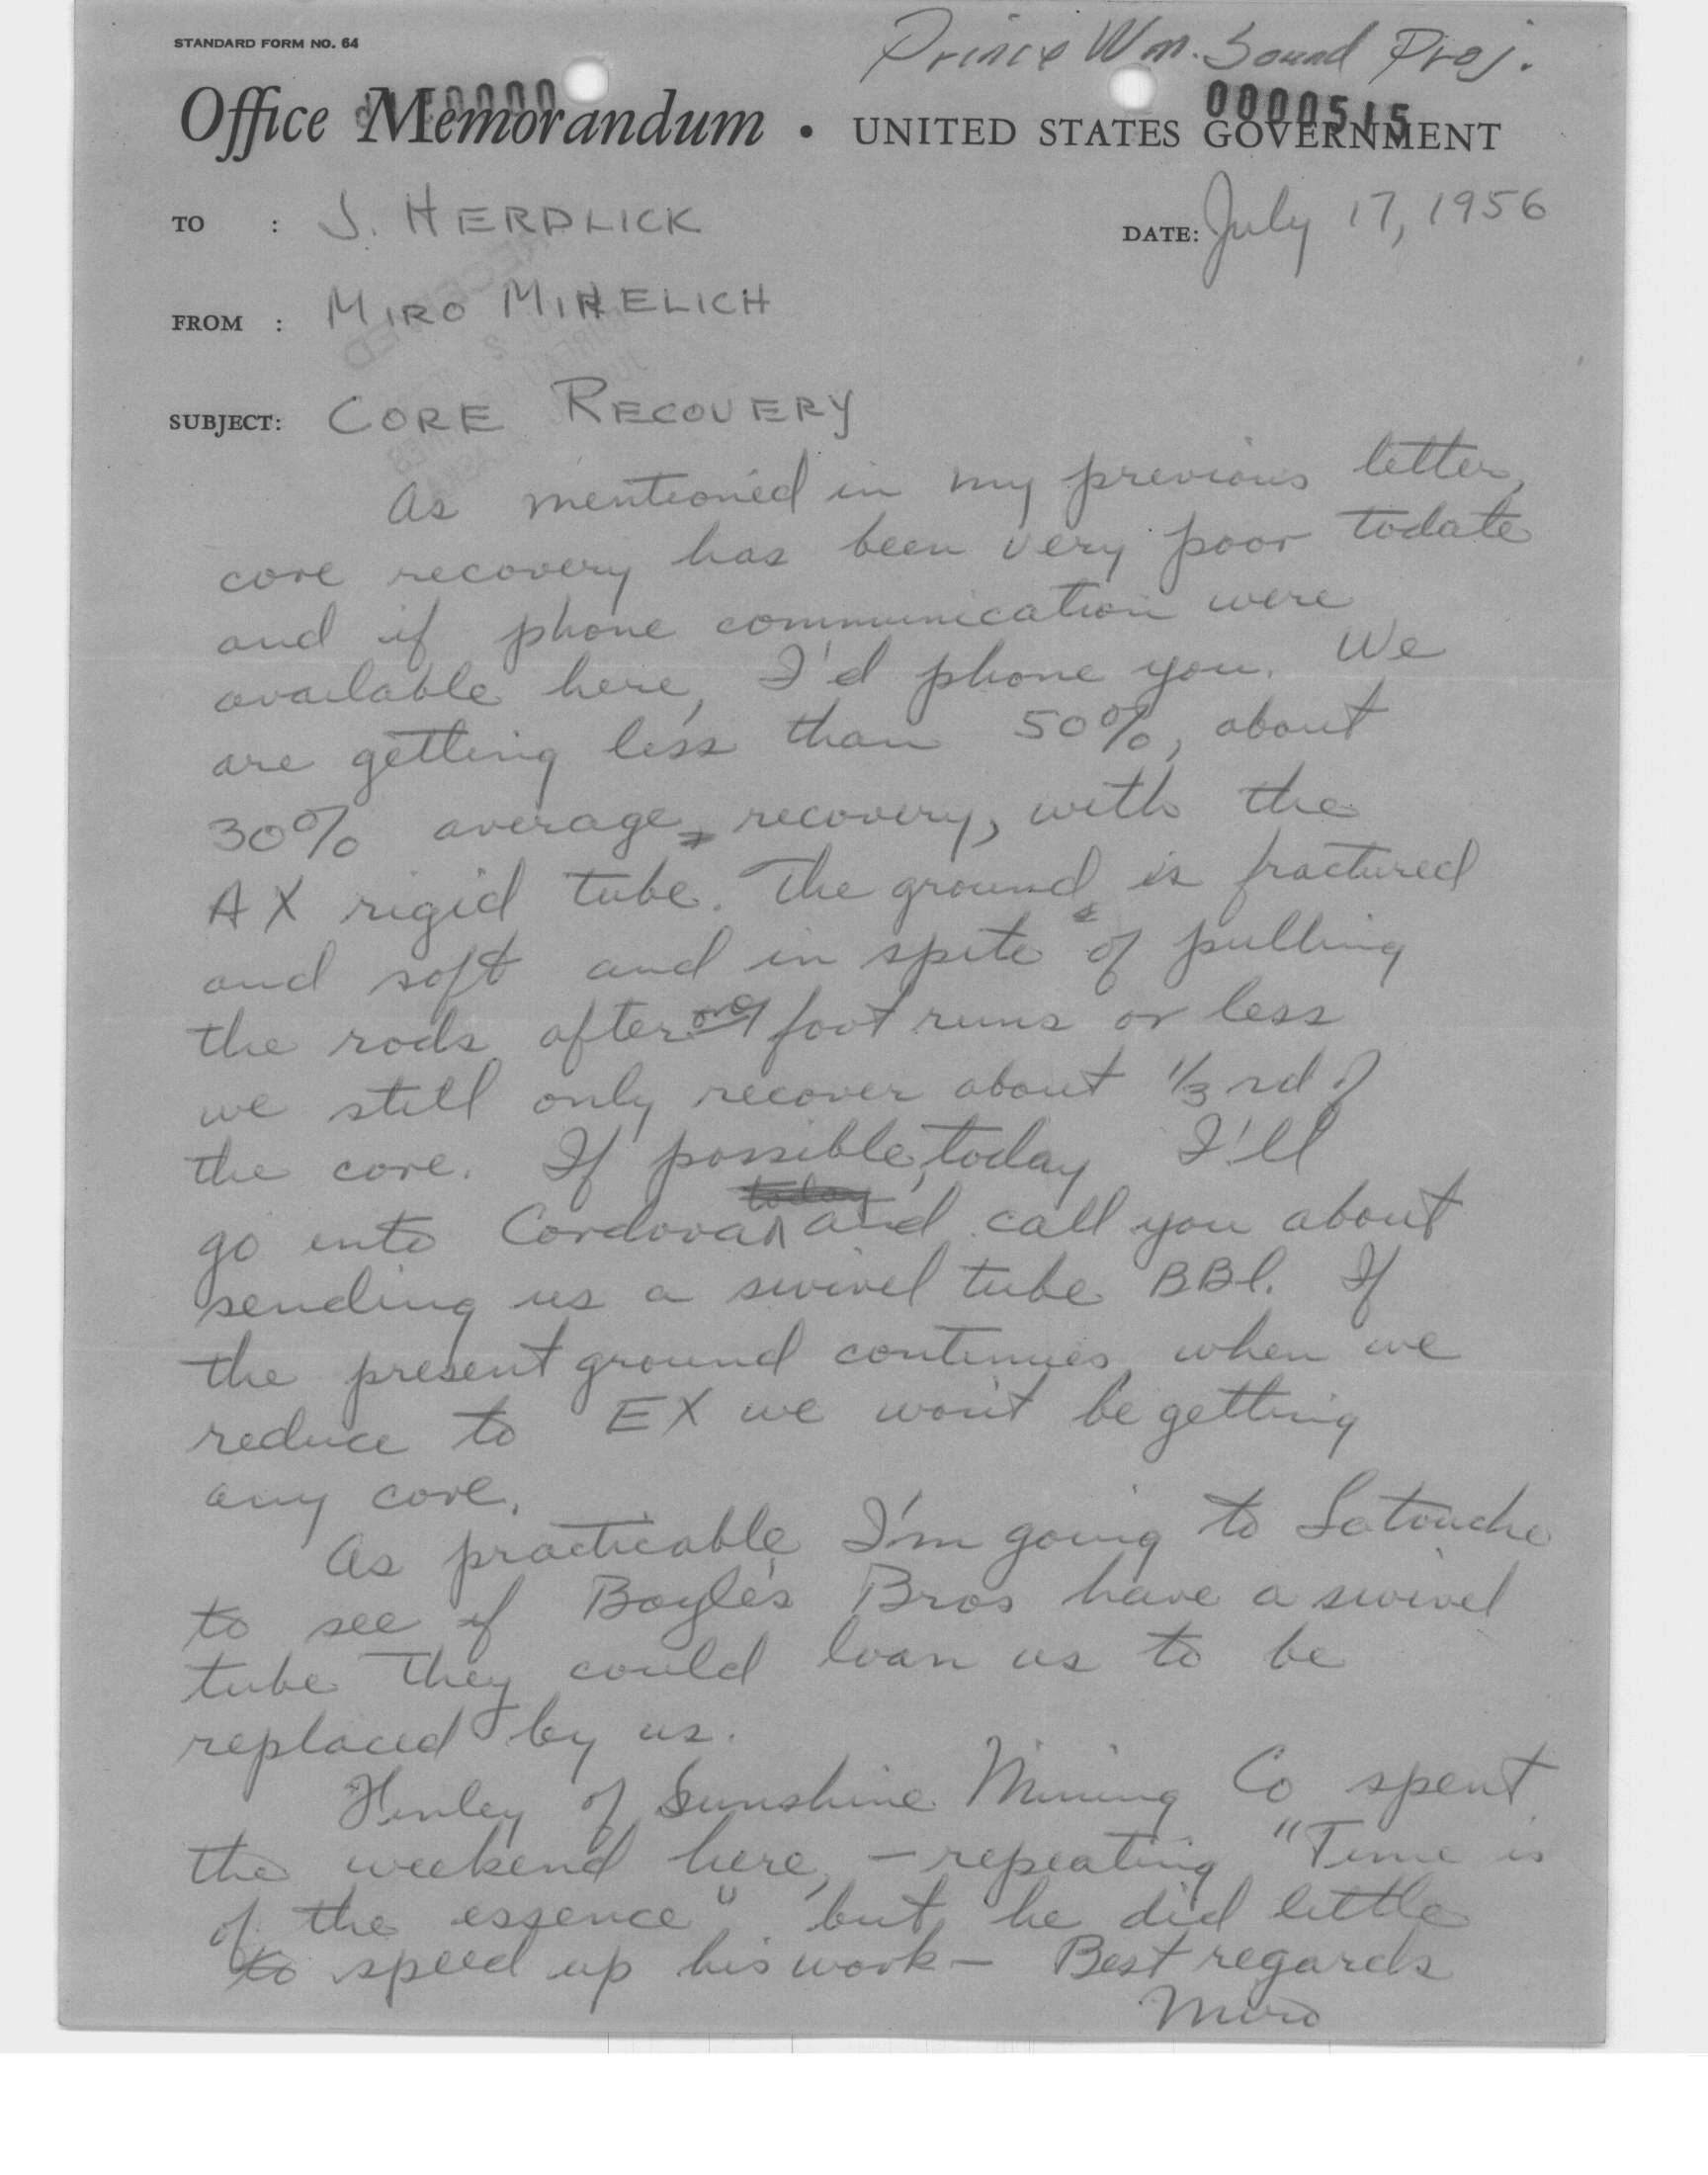 STANDARD FORM NO. 64
Prince Wm. Sound Proj.
0000515
Office Memorandum • UNITED STATES GOVERNMENT
TO : J. HERDLICK
DATE: July 17, 1956
FROM : MIRO MIHELICH
SUBJECT: CORE RECOVERY
As mentioned in my previous letter,
core recovery has been very poor todate
and if phone communication were
available here, I'd phone you. We
are getting less than 50%, about
30% average recovery, with the
AX rigid tube. The ground is fractured
and soft and in spite of pulling
the rods after one foot runs or less
we still only recover about 1/3 rd of
the core. If possible, today I'll
today
go into Cordova and call you about
sending us a swivel tube BBl. If
the present ground continues, when we
reduce to EX we won't be getting
any core.
As practicable I'm going to Latouche
to see if Boyle's Bros have a swivel
tube they could loan us to be
replaced by us.
Henley of Sunshine Mining Co spent
the weekend here, – repeating "Time is
of the essence", but he did little
to speed up his work – Best regards
Miro